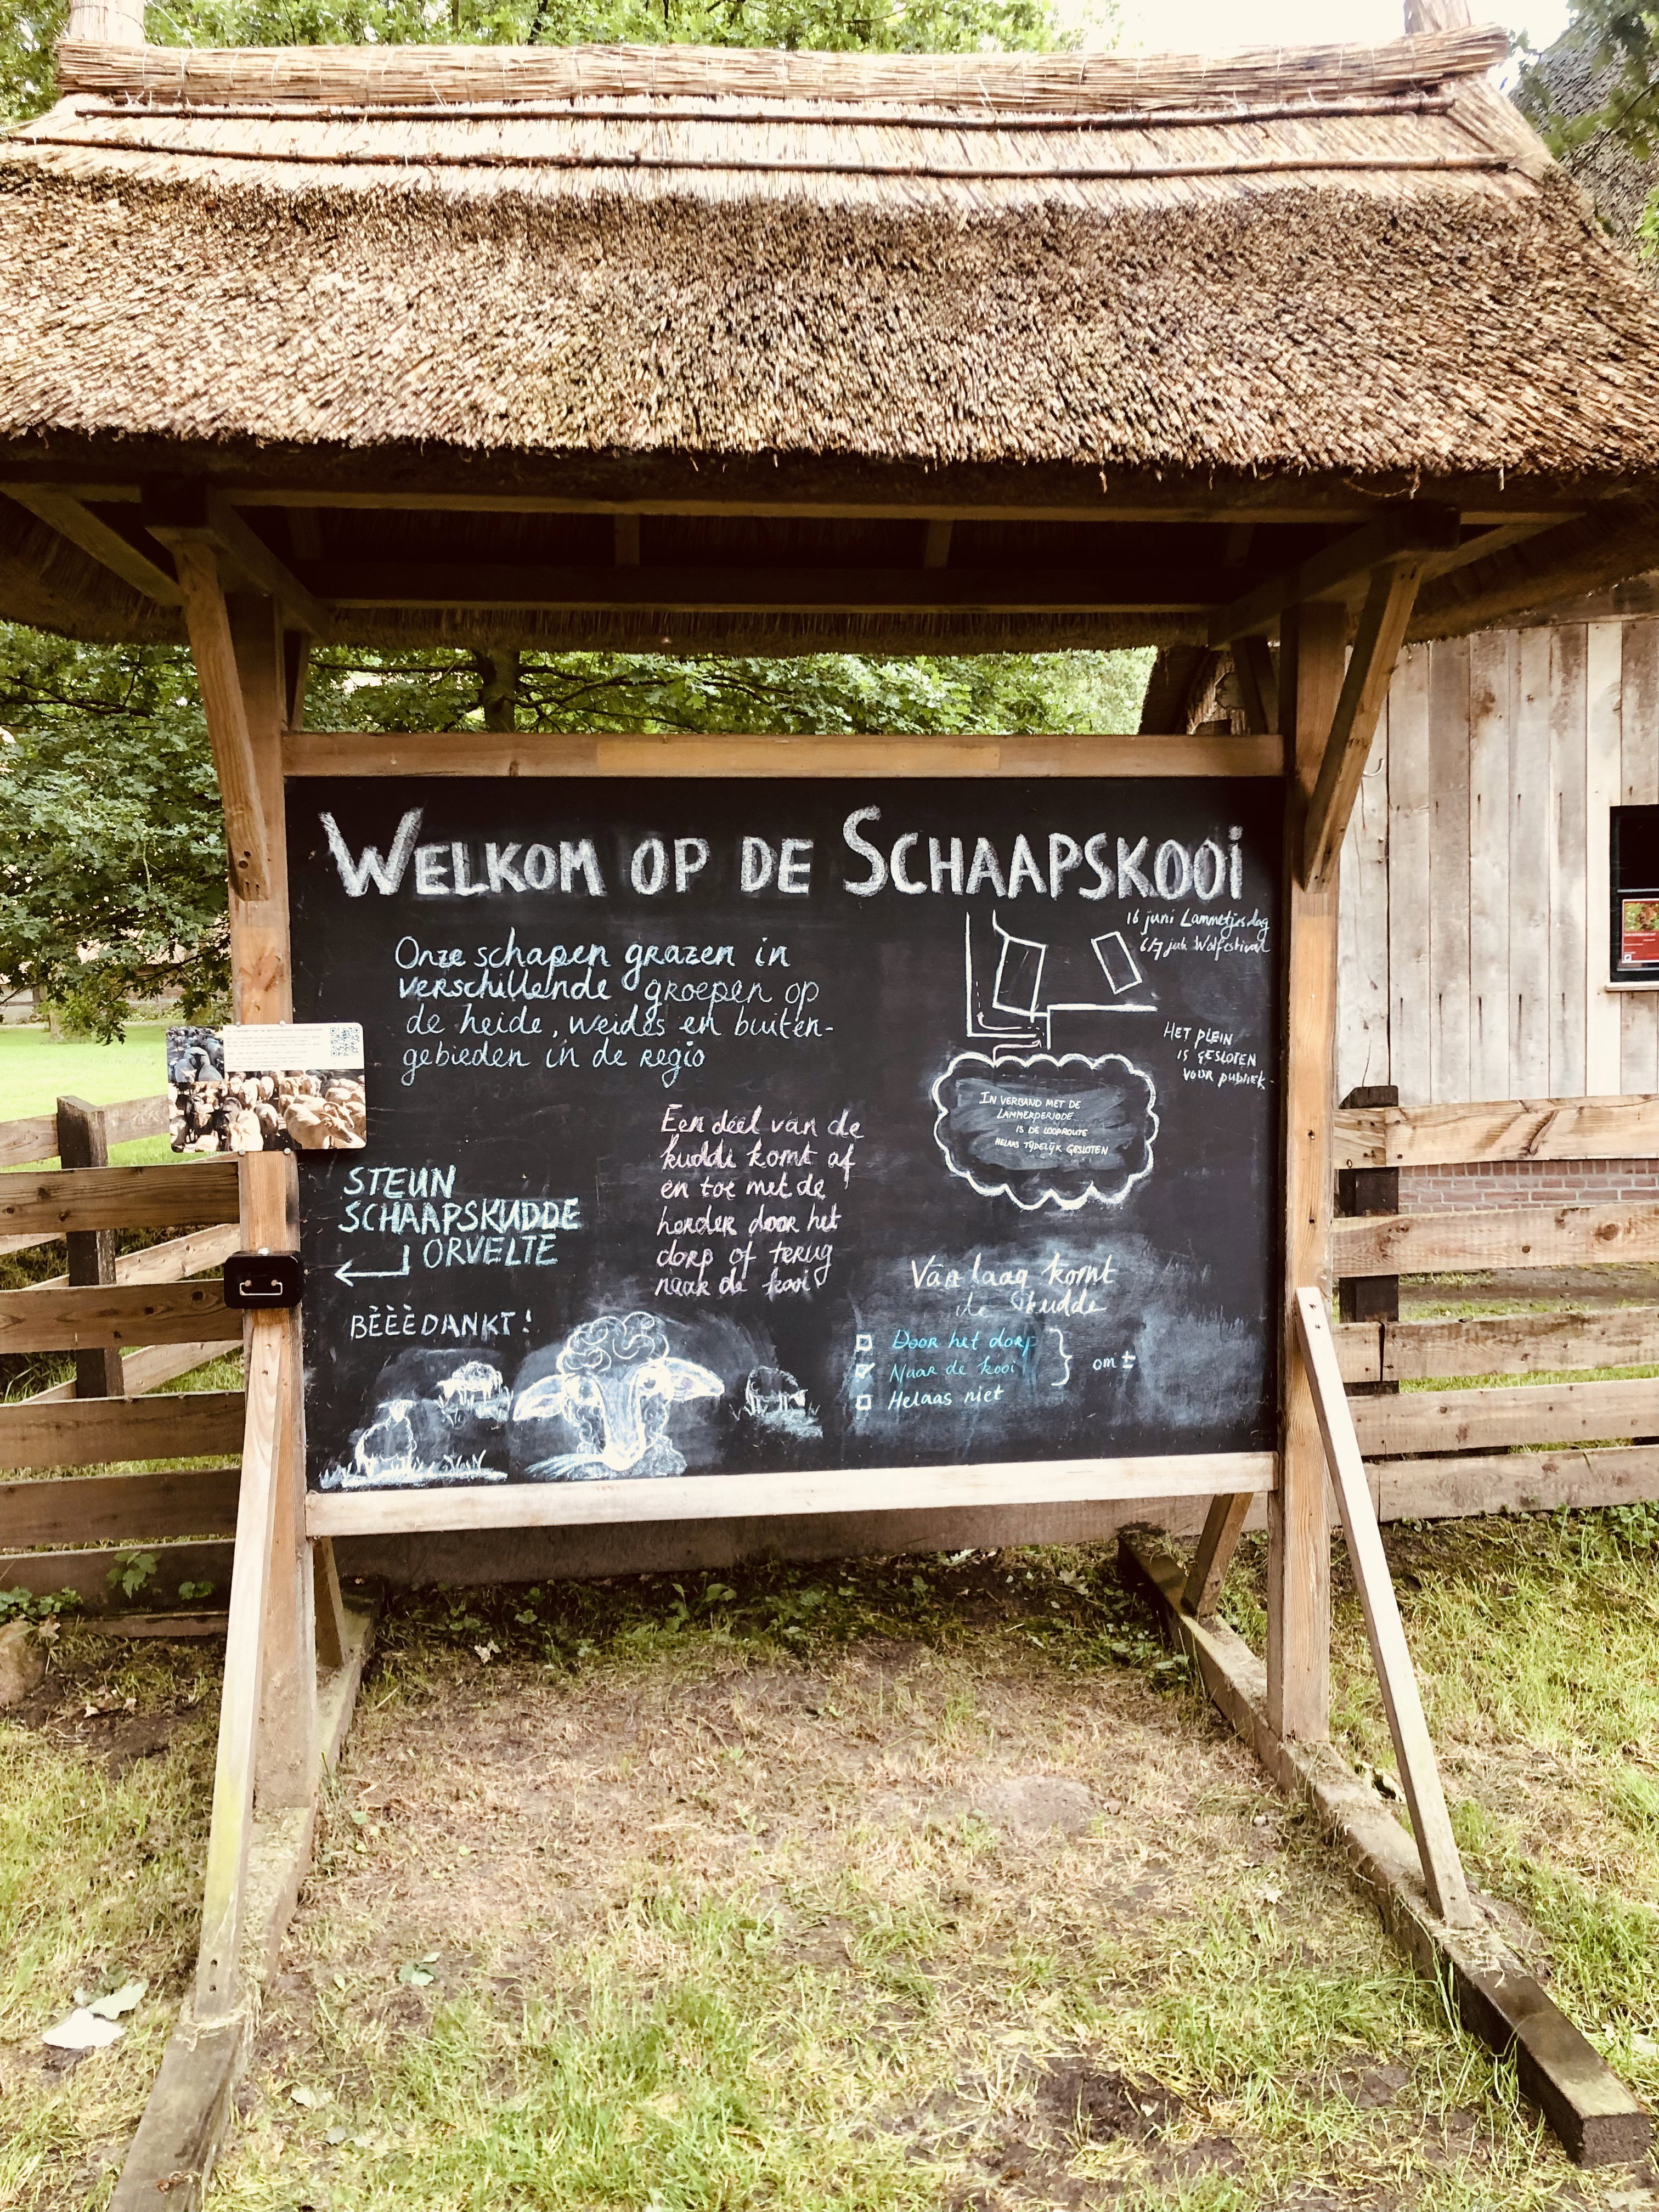 WELKOM OP DE SCHAAPSKOOI
16 juni Lammetjesdag
6/7 juli Wolfestival
Onze schapen grazen in
verschillende groepen op
de heide, weides en buiten-
gebieden in de regio
HET PLEIN
IS GESLOTEN
VOOR PUBLIEK
IN VERBAND MET DE
LAMMERPERIODE
IS DE LOOPROUTE
HELAAS TIJDELIJK GESLOTEN
Een deel van de
kudde komt af
en toe met de
herder door het
dorp of terug
naar de kooi
STEUN
SCHAAPSKUDDE
ORVELTE
BÈÈÈDANKT!
Vandaag komt
de kudde
Door het dorp
Naar de kooi
Helaas niet
om ±